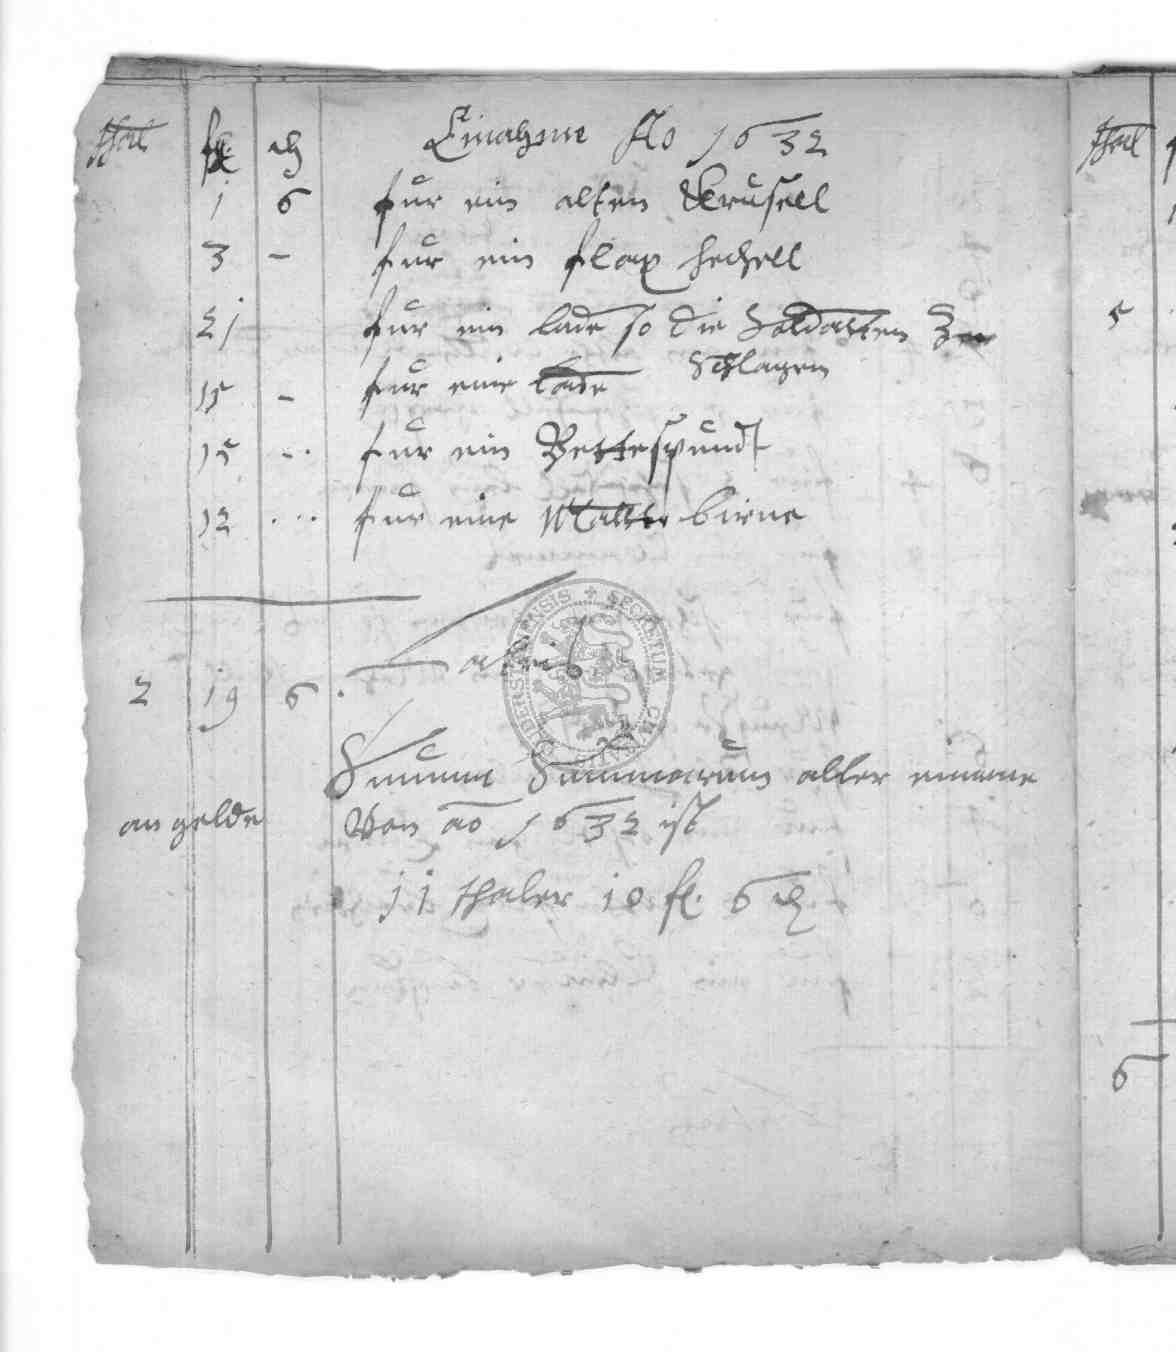 Thal fl. ₰ Einahme Ao 1632
1 6 für ein alten Krusell
3 - für ein flax hechell
21 für ein lade so die Soldatten Zer
Schlagen
15 - für eine lade
15 - .. für ein Bettespundt
12 . ... für eine Malter birne
Latus
2 19 6 .
Summa Summarum aller einame
an gelde Von ao 1632 ist
11 thaler 10 fl. 6 ₰
Thal
5
6